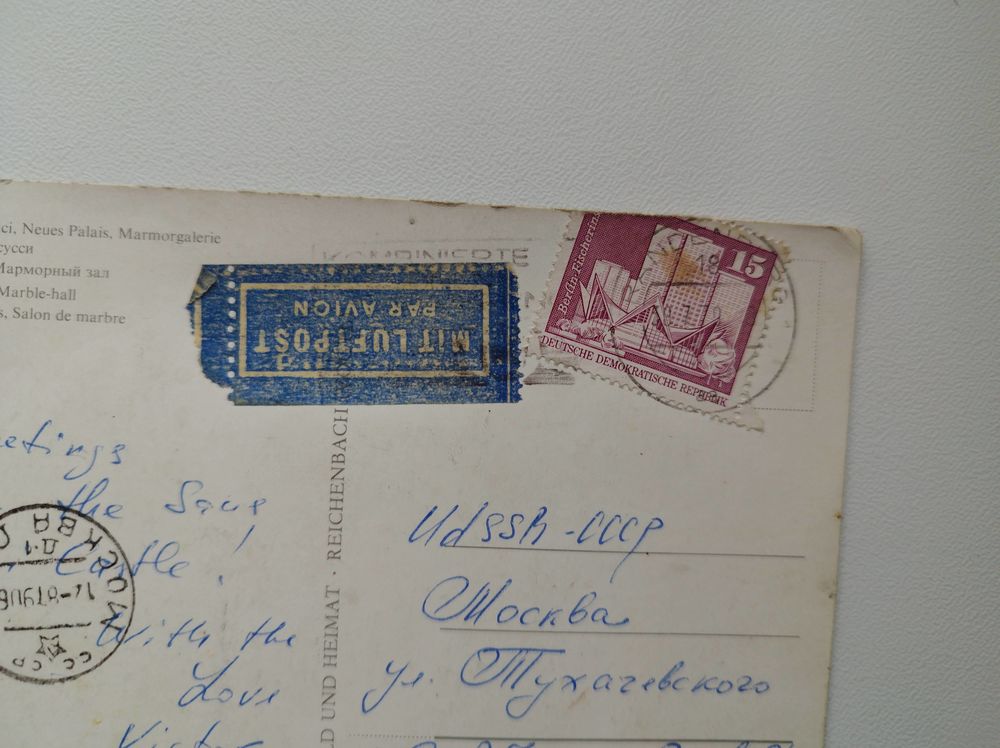 ci, Neues Palais, Marmorgalerie
сусси
Марморный зал
Marble-hall
s, Salon de marbre
KOMBINIERTE
MIT LUFTPOST
PAR AVION
Berlin-Fischerins
15
DEUTSCHE DEMOKRATISCHE REPUBLIK
18
etings
the Sans
Castle!
With the
Love
МОСКВА
Д-1
СССР
LD UND HEIMAT · REICHENBACH
UdSSR-СССР
Москва
ул. Тухачевского